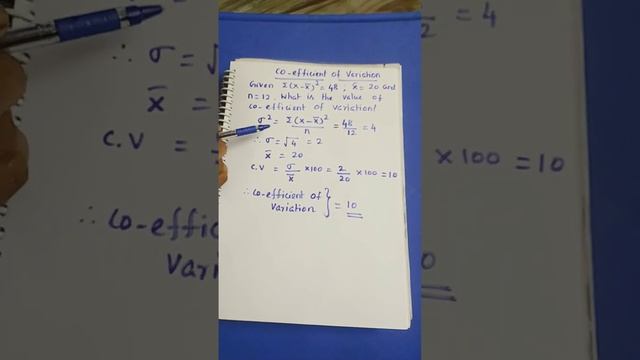 Co-efficient of Variation
Given Σ(x-x̄)² = 48, x̄ = 20 and
n=12. What is the value of
co-efficient of variation?
σ² = Σ(x-x̄)²/n = 48/12 = 4
∴ σ = √4 = 2
x̄ = 20
C.V = σ/x̄ ×100 = 2/20 ×100 = 10
∴ Co-efficient of Variation } = 10